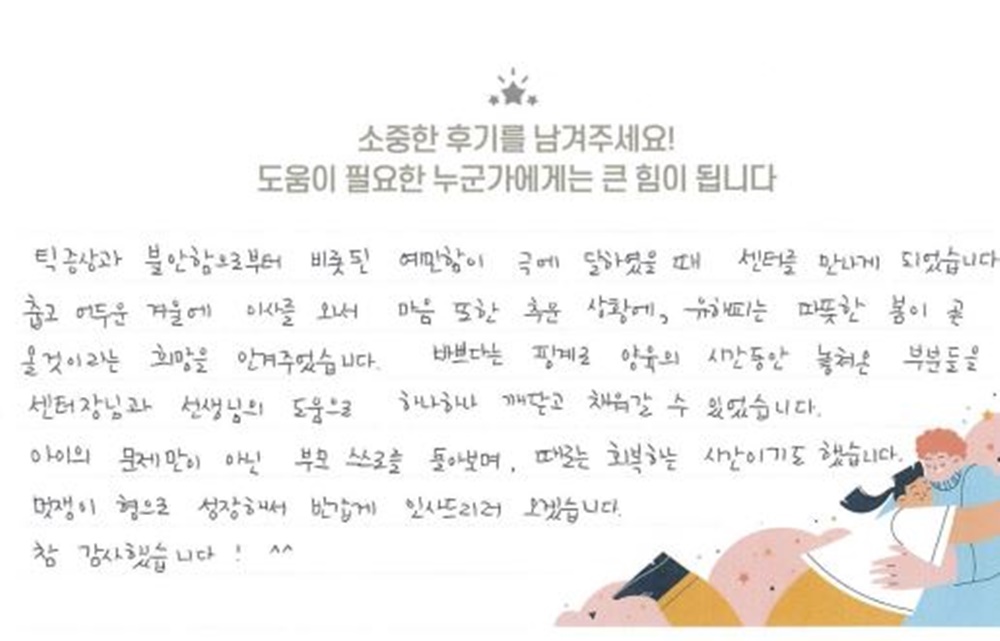 소중한 후기를 남겨주세요!
도움이 필요한 누군가에게는 큰 힘이 됩니다
틱증상과 불안함으로부터 비롯된 예민함이 극에 달하였을 때 센터를 만나게 되었습니다
춥고 어두운 겨울에 이사를 와서 마음 또한 추운 상황에, 유해피는 따뜻한 봄이 곧
올것이라는 희망을 안겨주었습니다. 바쁘다는 핑계로 양육의 시간동안 놓쳐온 부분들을
센터장님과 선생님의 도움으로 하나하나 깨닫고 채워갈 수 있었습니다.
아이의 문제만이 아닌 부모 스스로를 돌아보며, 때로는 회복하는 시간이기도 했습니다.
멋쟁이 형으로 성장해서 반갑게 인사드리러 오겠습니다.
참 감사했습니다! ^^